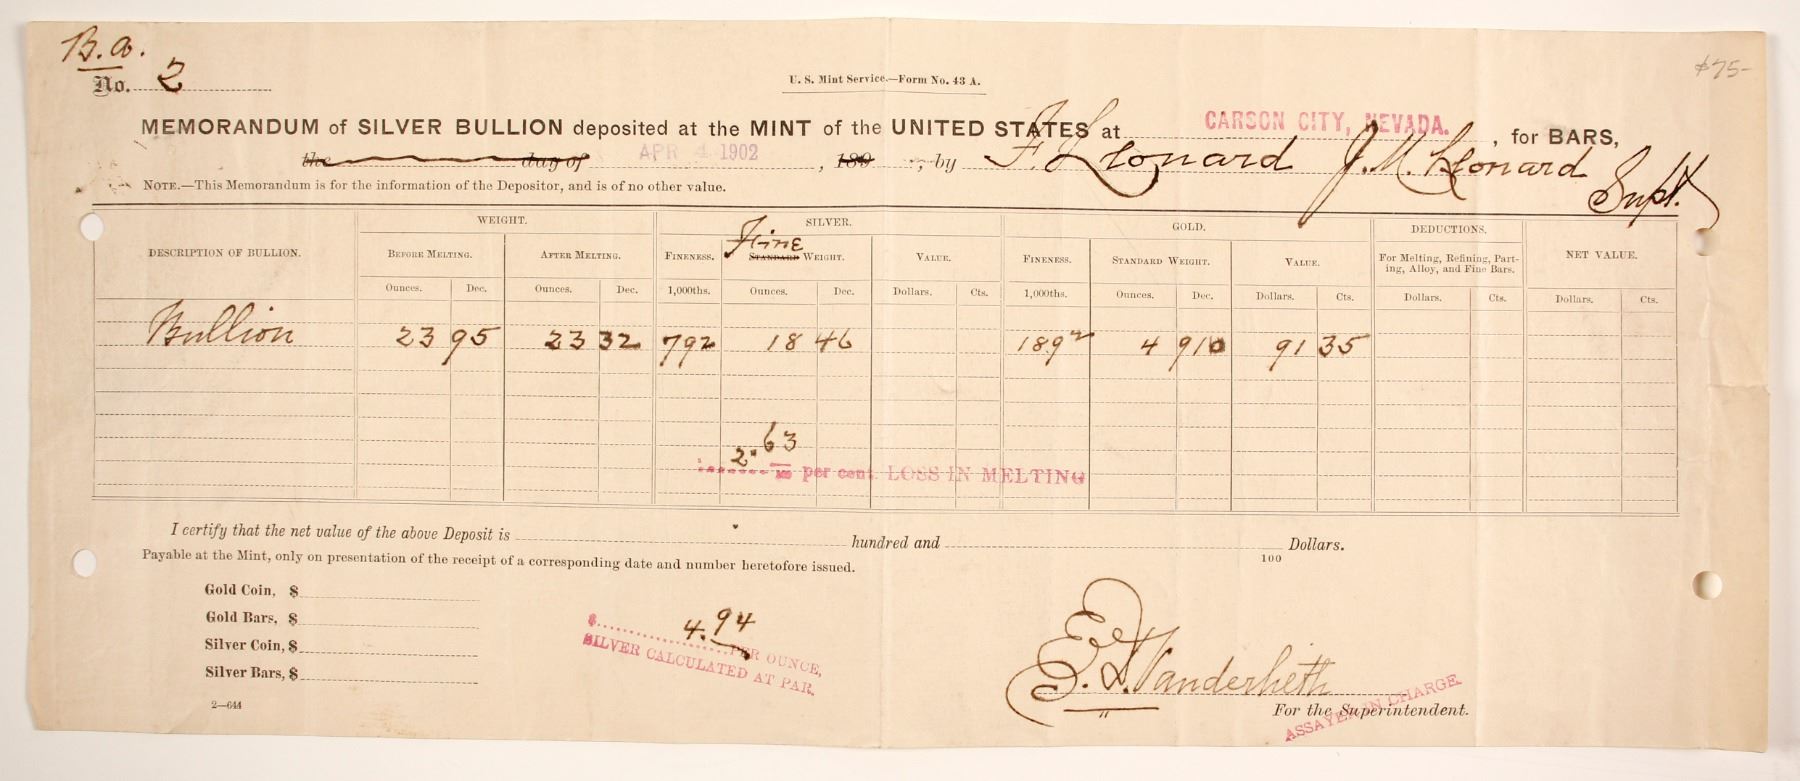 B.a.
No. 2
$75-
U. S. Mint Service.—Form No. 43 A.
MEMORANDUM of SILVER BULLION deposited at the MINT of the UNITED STATES at CARSON CITY, NEVADA. , for BARS,
the day of APR 4 1902 , 189 ; by F. Leonard J. M. Leonard Supt.
NOTE.—This Memorandum is for the information of the Depositor, and is of no other value.
DESCRIPTION OF BULLION. WEIGHT. SILVER. GOLD. DEDUCTIONS. NET VALUE.
BEFORE MELTING. AFTER MELTING. FINENESS. Fine STANDARD WEIGHT. VALUE. FINENESS. STANDARD WEIGHT. VALUE. For Melting, Refining, Part-
ing, Alloy, and Fine Bars.
Ounces. Dec. Ounces. Dec. 1,000ths. Ounces. Dec. Dollars. Cts. 1,000ths. Ounces. Dec. Dollars. Cts. Dollars. Cts. Dollars. Cts.
Bullion 23 95 23 32 792 18 46 189 2 4 910 91 35
2.63
per cent. LOSS IN MELTING
I certify that the net value of the above Deposit is hundred and 100 Dollars.
Payable at the Mint, only on presentation of the receipt of a corresponding date and number heretofore issued.
Gold Coin, $
Gold Bars, $
Silver Coin, $
Silver Bars, $
$ 4.94 PER OUNCE,
SILVER CALCULATED AT PAR.
2—644
E. D. Vanderlieth
For the Superintendent.
ASSAYER IN CHARGE.